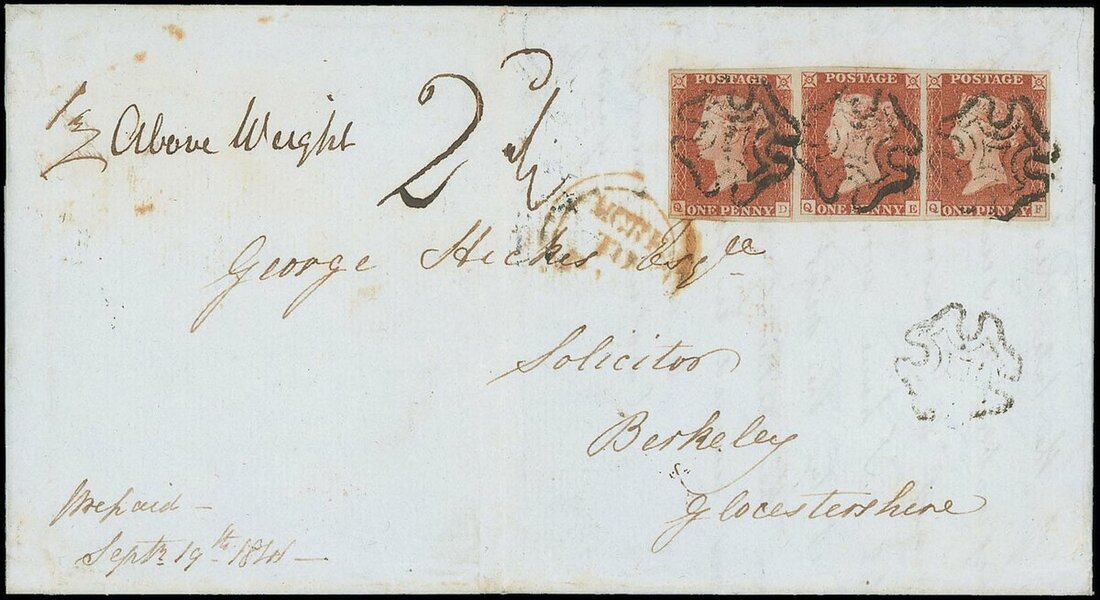 Above Weight
2d
POSTAGE POSTAGE POSTAGE
Q ONE PENNY D Q ONE PENNY E Q ONE PENNY F
George Hickes Esqre
Solicitor
Berkeley
Glocestershire
Prepaid —
Septr 19th 1841 —